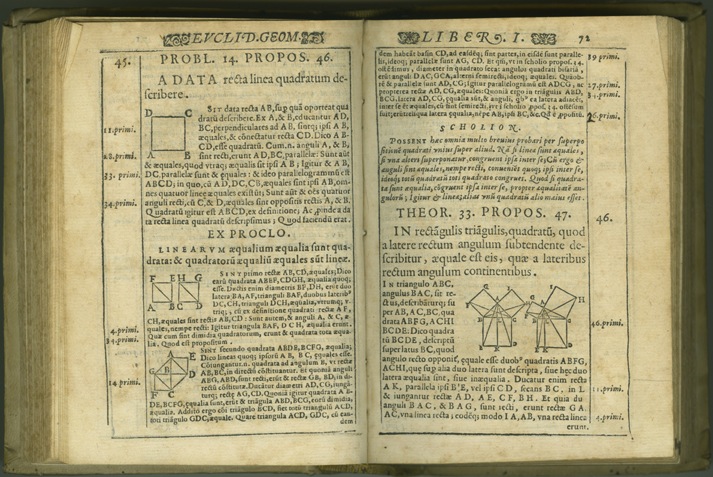 EVCLID. GEOM.
45.
PROBL. 14. PROPOS. 46.
A DATA recta linea quadratum de-
scribere.
D C
A E
SIT data recta AB, sup quā oporteat qua
dratū describere. Ex A, & B, educantur AD,
11. primi.
BC, perpendiculares ad AB, sintq; ipsi AB,
æquales, & cōnectatur recta CD. Dico AB-
CD, esse quadratū. Cum. n. anguli A, & B,
28. primi.
sint recti, erunt AD, BC, parallelæ: Sunt aūt
& æquales, quod vtraq; æqualis sit ipsi AB; Igitur & AB,
33. primi.
DC, parallelæ sunt & equales: & ideo parallelogrammū est
ABCD; in quo, cū AD, DC, CB, æquales sint ipsi AB, om-
nes quatuor lineæ æquales existūt; Sunt aūt & oēs quatuor
34. primi.
anguli recti, cū C, & D, æquales sint oppositis rectis A, & B.
Quadratū igitur est ABCD, ex definitione; Ac, pinde a da
ta recta linea quadratū descripsimus; Quod faciendū erat.
EX PROCLO.
LINEARVM æqualium æqualia sunt qua-
drata: & quadratorū æqualiū æquales sūt lineæ.
F E H G
A B C D
SINT primo rectæ AB, CD, æquales; Dico
earū quadrata ABEF, CDGH, æqualia quoq;
esse. Ductis enim diametris BF, DH, erūt duo
latera BA, AF, trianguli BAF, duobus laterib⁹
DC, CH, trianguli DCH, æqualia, vtrumq; v-
triq; ; cū ex definitione quadrati rectæ AF,
CH, æquales sint rectis AB, CD: Sunt autem, & anguli A, & C, æ-
4. primi.
quales, nempe recti: Igitur triangula BAF, DCH, æqualia erunt.
34. primi.
Quæ cum sint dimidia quadratorum, erunt & quadrata tota æqua-
lia. Quod est propositum.
A E
G B D
F C
SINT secundo quadrata ABDE, BCFG, æqualia;
Dico lineas quoq; ipsorū AB, BC, equales esse.
Cōiungantur. n. quadrata ad angulum B, vt rectæ
14. primi.
AB, BC, in directū cōstituantur. Et quoniā anguli
ABG, ABD, sunt recti, erūt & rectæ GB, BD, in di-
rectū cōstitutæ. Ducātur diametri AD, CG, iungā-
turq; rectæ AG, CD. Quoniā igitur quadrata AB-
DE, BCFG, equalia sunt, erūt & triāgula ABD, BCG, eorū dimidia,
æqualia. Addito ergo cōi triāgulo BCD, fiet totū triangulū ACD,
toti triāgulo GDC, æquale. Quare triangula ACD, GDC, cū ean
dem
LIBER I.
72
dem habeāt basin CD, ad easdēq; sint partes, in eisdē sunt paralle-
39 primi.
lis, ideoq; parallelæ sunt AG, CD. Et qm, vt in scholio propos. 34.
ostēsimus, diameter in quadrato secat angulos quadrati bifariā,
erūt anguli DAC, GCA, alterni semirecti, ideoq; æquales. Quiob-
27. primi.
re & parallelæ sunt AD, CG; igitur parallelogramū est ADCG, ac
34. primi.
propterea rectæ AD, CG, æquales: Quoniā ergo in triāgulis ABD,
BCG, latera AD, CG, equalia sūt, & anguli, qb⁹ ea latera adiacēt,
26. primi.
inter se ēt æquales, cū sint semirecti, vt ī scholio ppos. 34. ostēsum
fuit; erūt reliqua latera equalia, nēpe AB, ipsi BC, &c. Qđ ē ppositū.
SCHOLION.
POSSENT hac omnia multo breuius probari per superpo
sitionē quadrati vnius super aliud. Nā si lineæ sunt æquales,
si vna alteri superponatur, congruent ipsæ inter se; Cū ergo &
anguli sint æquales, nempe recti, conuenient quoq; ipsi inter se,
ideoq; totū quadratū toti quadrato congruet. Quod si quadra-
ta sunt æqualia, cōgruent ipsa inter se, propter æqualitatē an-
gulorū; Igitur & lineæ; alias vnū quadratū alio maius esset.
THEOR. 33. PROPOS. 47.
46.
IN rectāgulis triāgulis, quadratū, quod
a latere rectum angulum subtendente de-
scribitur, æquale est eis, quæ a lateribus
rectum angulum continentibus.
IN triangulo ABC,
angulus BAC, sit re-
ctus, describāturq; su
per AB, AC, BC, qua
drata ABFG, ACHI
46. primi.
BCDE: Dico quadra
tū BCDE, descriptū
super latus BC, quod
angulo recto opponit̃, equale esse duob⁹ quadratis ABFG,
ACHI, que sup alia duo latera sunt descripta, siue hęc duo
latera æqualia sint, siue inæqualia. Ducatur enim recta
31. primi.
AK, parallela ipsi BE, vel ipsi CD, secans BC, in L
& iungantur rectæ AD, AE, CF, BH. Et quia du
anguli BAC, & BAG, sunt recti, erunt rectæ GA
4. primi.
AC, vna linea recta; eodēq; modo IA, AB, vna recta linea
erunt.